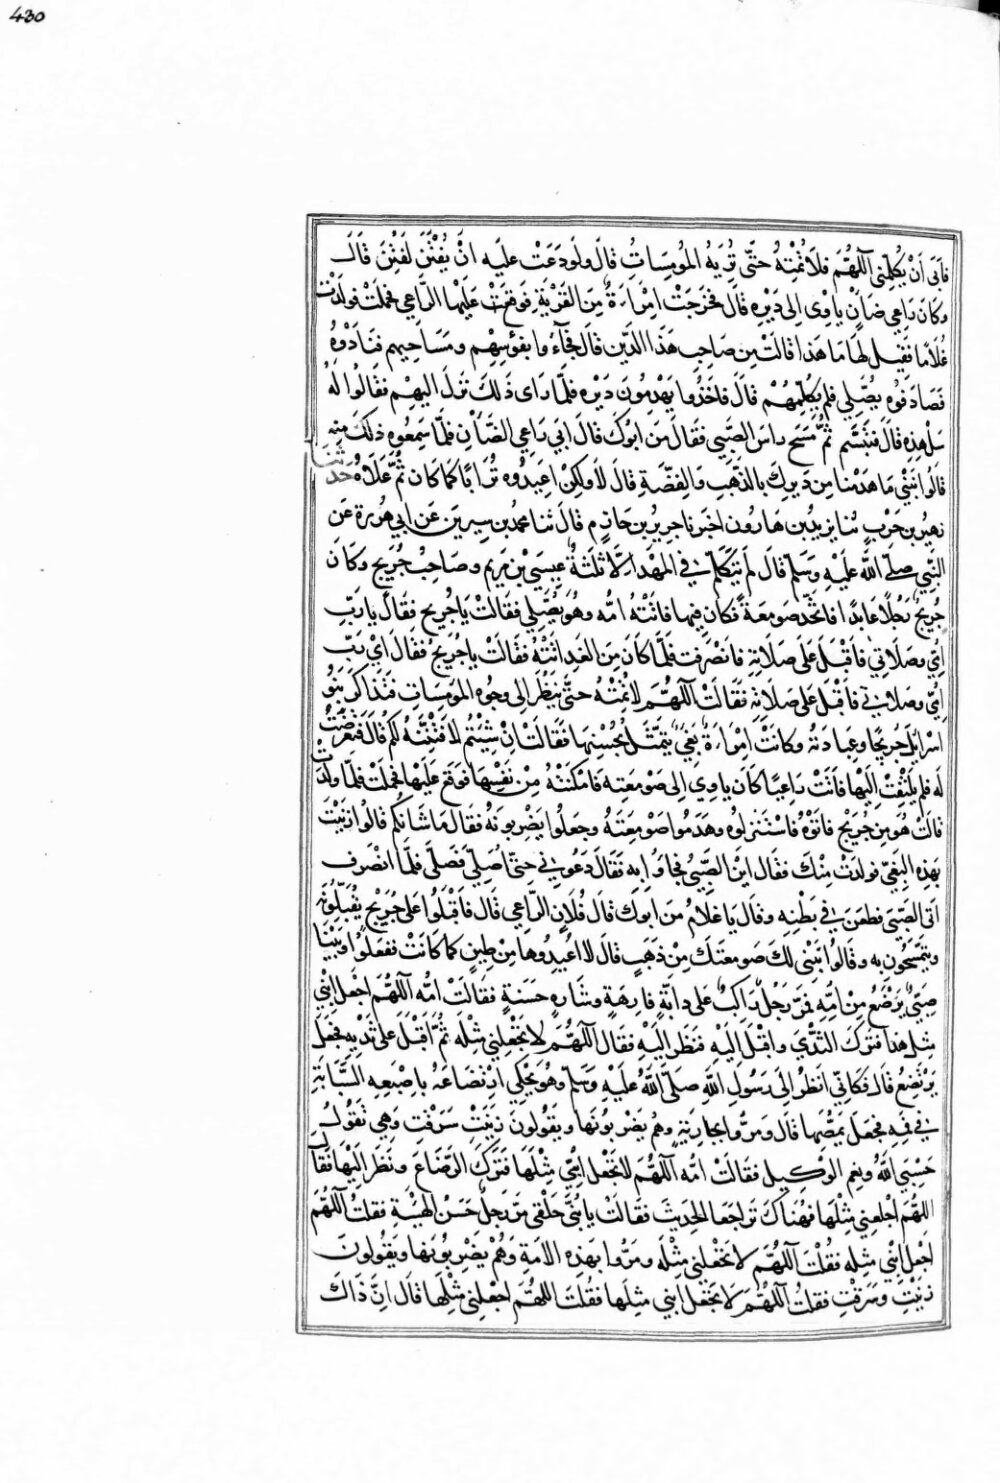 430
فَاَبَى اَنْ يُكَلِّمَنِى اَللّٰهُمَّ فَلَا تُمِتْهُ حَتَّى تُرِيَهُ المُومِسَاتِ قَالَ وَلَو دَعَتْ عَلَيهِ اَنْ يُفْتَنَ لَفُتِنَ قَالَ
وَكَانَ رَاعِي ضَاْنٍ يَاوِى اِلى دَيْرِهِ قَالَ فَخَرَجَتْ اِمْرَاَةٌ مِنَ القَرْيَةِ فَوَقَعَ عَلَيْهَا الرَّاعِي فَحَمَلَتْ فَوَلَدَتْ
غُلَامًا فَقِيْلَ لَهَا مَا هَذَا قَالَتْ مِن صَاحِبِ هَذَا الدَّيْرِ قَالَ فَجَآءُوا بِفُؤُسِهِمْ وَمَسَاحِيهِم فَنَادَوْهُ
فَصَادَفُوهُ يُصَلِّي فَلَم يُكَلِّمْهُمْ قَالَ فَاَخَذُوا يَهْدِمُونَ دَيْرَهُ فَلَمَّا رَاى ذَلِكَ نَزَلَ اليْهِمْ فَقَالُوا لَهُ
سَلْ هَذِهِ قَالَ فَتَبَسَّمَ ثُمَّ مَسَحَ رَاسَ الصَّبِي فَقَالَ مَن ابُوكَ قَالَ اَبِي رَاعِي الضَّاْنِ فَلَمَّا سَمِعُوا ذَلِكَ مِنه
قَالُوا نَبْنِي مَا هَدَمْنَا مِن دَيرِكَ بِالذَّهَبِ وَالفِضَّةِ قَالَ لَا وَلكِنْ اَعِيدُوه تُرَابًا كَمَا كَانَ ثُمَّ عَلَاهُ حَدَّثَنَا
زهيرُ بن حَرْبٍ ثنا يزيدُ بن هَارُون اخبرَنا جريرُ بن حَازِم قالَ ثنا محمدُ بن سِيرِينَ عَن ابي هُريرةَ عَن
النَّبِيِّ صلى اللَّهُ عَلَيْهِ وَسَلَّم قَالَ لَم يَتَكَلَّم فِي المَهْدِ اِلَّا ثَلَثَةٌ عِيسَى بْن مَريم وَصَاحِبُ جُرَيجٍ وَكَانَ
جُرَيجٌ رَجُلًا عَابِدًا فَاتَّخَذَ صَومَعَةً فَكَانَ فِيهَا فَاَتَتْهُ اُمُّه وَهُوَ يُصَلِّي فَقَالَتْ يَا جُرَيج فَقَالَ يَا رَبِّ
اُمِّي وَصَلَاتِي فَاَقْبَلَ عَلى صَلَاتِهِ فَانْصَرَفَت فَلَمَّا كَانَ مِنَ الغَدِ اَتَتْهُ فَقَالَتْ يَا جُرَيجُ فَقَالَ اَيْ رَبِّ
اُمِّي وَصَلَاتِي فَاَقْبَلَ عَلى صَلَاتِهِ فَقَالَتْ اَللّٰهُمَّ لَا تُمِتْهُ حَتَّى يَنظُرَ اِلى وُجُوهِ المُومِسَاتِ فَتَذَاكَرَ بَنُو
اسْرَائِلَ جُرَيجًا وَعِبَادَتهُ وَكَانَتْ اِمْرَاَةٌ بَغِيٌّ يُتَمَثَّلُ بِحُسْنِهَا فَقَالَتْ اِنْ شِئْتُم لَاَفْتِنَنَّهُ لَكُم قَالَ فَتَعَرَّضَتْ
لَه فَلَم يَلْتَفِتْ اِلَيْهَا فَاَتَتْ رَاعِيًا كَانَ يَاوِي اِلى صَوْمَعَتِهِ فَاَمْكَنَتْهُ مِنْ نَفْسِهَا فَوَقَعَ عَلَيْهَا فَحَمَلَتْ فَلَمَّا وَلَدَتْ
قَالَتْ هُوَ مِن جُرَيْجٍ فَاتَوْهُ فَاسْتَنْزَلُوهُ وَهَدَمُوا صَوْمَعَتَهُ وَجَعَلُوا يَضْرِبُونَهُ فَقَالَ مَا شَانُكُم قَالُوا زَنَيْتَ
بِهَذِهِ البَغِيِّ فَوَلَدَتْ مِنْكَ فَقَالَ اَيْنَ الصَّبِيُّ فَجَاؤُا بِهِ فَقَالَ دَعُونِي حَتَّى اُصَلِّيَ فَصَلَّى فَلَمَّا انْصَرَفَ
اَتَى الصَّبِيَّ فَطَعَنَ فِي بَطْنِهِ وَقَالَ يَا غُلَامُ مَن اَبُوكَ قَالَ فُلَانٌ الرَّاعِي قَالَ فَاَقْبَلُوا عَلى جُرَيْجٍ يُقَبِّلُونَهُ
وَيَتَمَسَّحُونَ بِه وَقَالُوا نَبْنِي لَكَ صَومَعَتَكَ مِنْ ذَهَبٍ قَالَ لَا اَعِيدُوهَا مِن طِينٍ كَمَا كَانَتْ فَفَعَلُوا وَبَيْنَا
صَبِيٌّ يَرْضَعُ مِنْ اُمِّهِ فَمَرَّ رَجُلٌ رَاكِبٌ عَلى دَابَّةٍ فَارِهَةٍ وَشَارَهٍ حَسَنَةٍ فَقَالَتْ اُمُّه اَللّٰهُمَّ اجْعَلِ ابْنِي
مِثْلَ هَذَا فَتَرَكَ الثَّدْيَ وَاَقْبَلَ اِلَيْهِ فَنَظَرَ اِلَيْهِ فَقَالَ اَللّٰهُمَّ لَا تَجْعَلْنِي مِثْلَه ثُمَّ اَقْبَلَ عَلى ثَدْيِهِ فَجَعَلَ
يَرْتَضِعُ قَالَ فَكَانِّي اَنظُرُ اِلَى رَسُولِ اللَّه صَلَّى اللَّهُ عَلَيْهِ وَسَلَّم وَهُوَ يَحْكِي اِرْتِضَاعَهُ بِاِصْبَعِهِ السَّبَّابَةِ
فِي فَمِهِ فَجَعَلَ يَمُصُّهَا قَالَ وَمَرُّوا بِجَارِيَةٍ وَهُم يَضْرِبُونَهَا وَيَقُولُونَ زَنَيْتِ سَرَقْتِ وَهِيَ تَقُولُ
حَسْبِيَ اللَّهُ وَنِعْمَ الوَكِيلُ فَقَالَتْ اُمُّه اَللّٰهُمَّ لَا تَجْعَلِ ابْنِي مِثْلَهَا فَتَرَكَ الرَّضَاعَ وَنَظَرَ اِلَيْهَا فَقَالَ
اَللّٰهُمَّ اجْعَلنِي مِثْلَهَا فَهُنَاكَ تَرَاجَعَا الحَدِيثَ فَقَالَتْ يَا بُنَيَّ حَلْقَى مَرَّ رَجُلٌ حَسَنُ الهَيْئَةِ فَقُلْتُ اَللّٰهُمَّ
اجْعَلِ ابْنِي مِثْلَه فَقُلْتَ اَللّٰهُمَّ لَا تَجْعَلْنِي مِثْلَه وَمَرُّوا بِهَذِهِ الاَمَةِ وَهُمْ يَضْرِبُونَهَا وَيَقُولُونَ
زَنَيْتِ وَسَرَقْتِ فَقُلْتُ اَللّٰهُمَّ لَا تَجْعَلِ ابْنِي مِثْلَهَا فَقُلْتَ اللّٰهُمَّ اجْعَلْنِي مِثْلَهَا قَالَ اِنَّ ذَاكَ